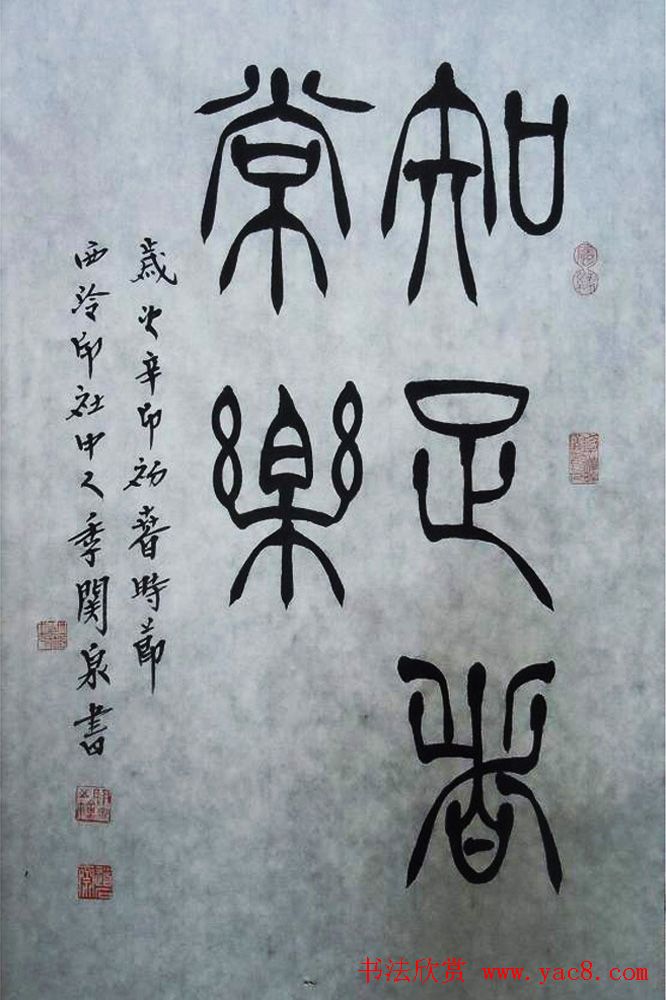 知足者
常樂
歲次辛卯初春時節
西泠印社中人季関泉書
书法欣赏 www.yac8.com